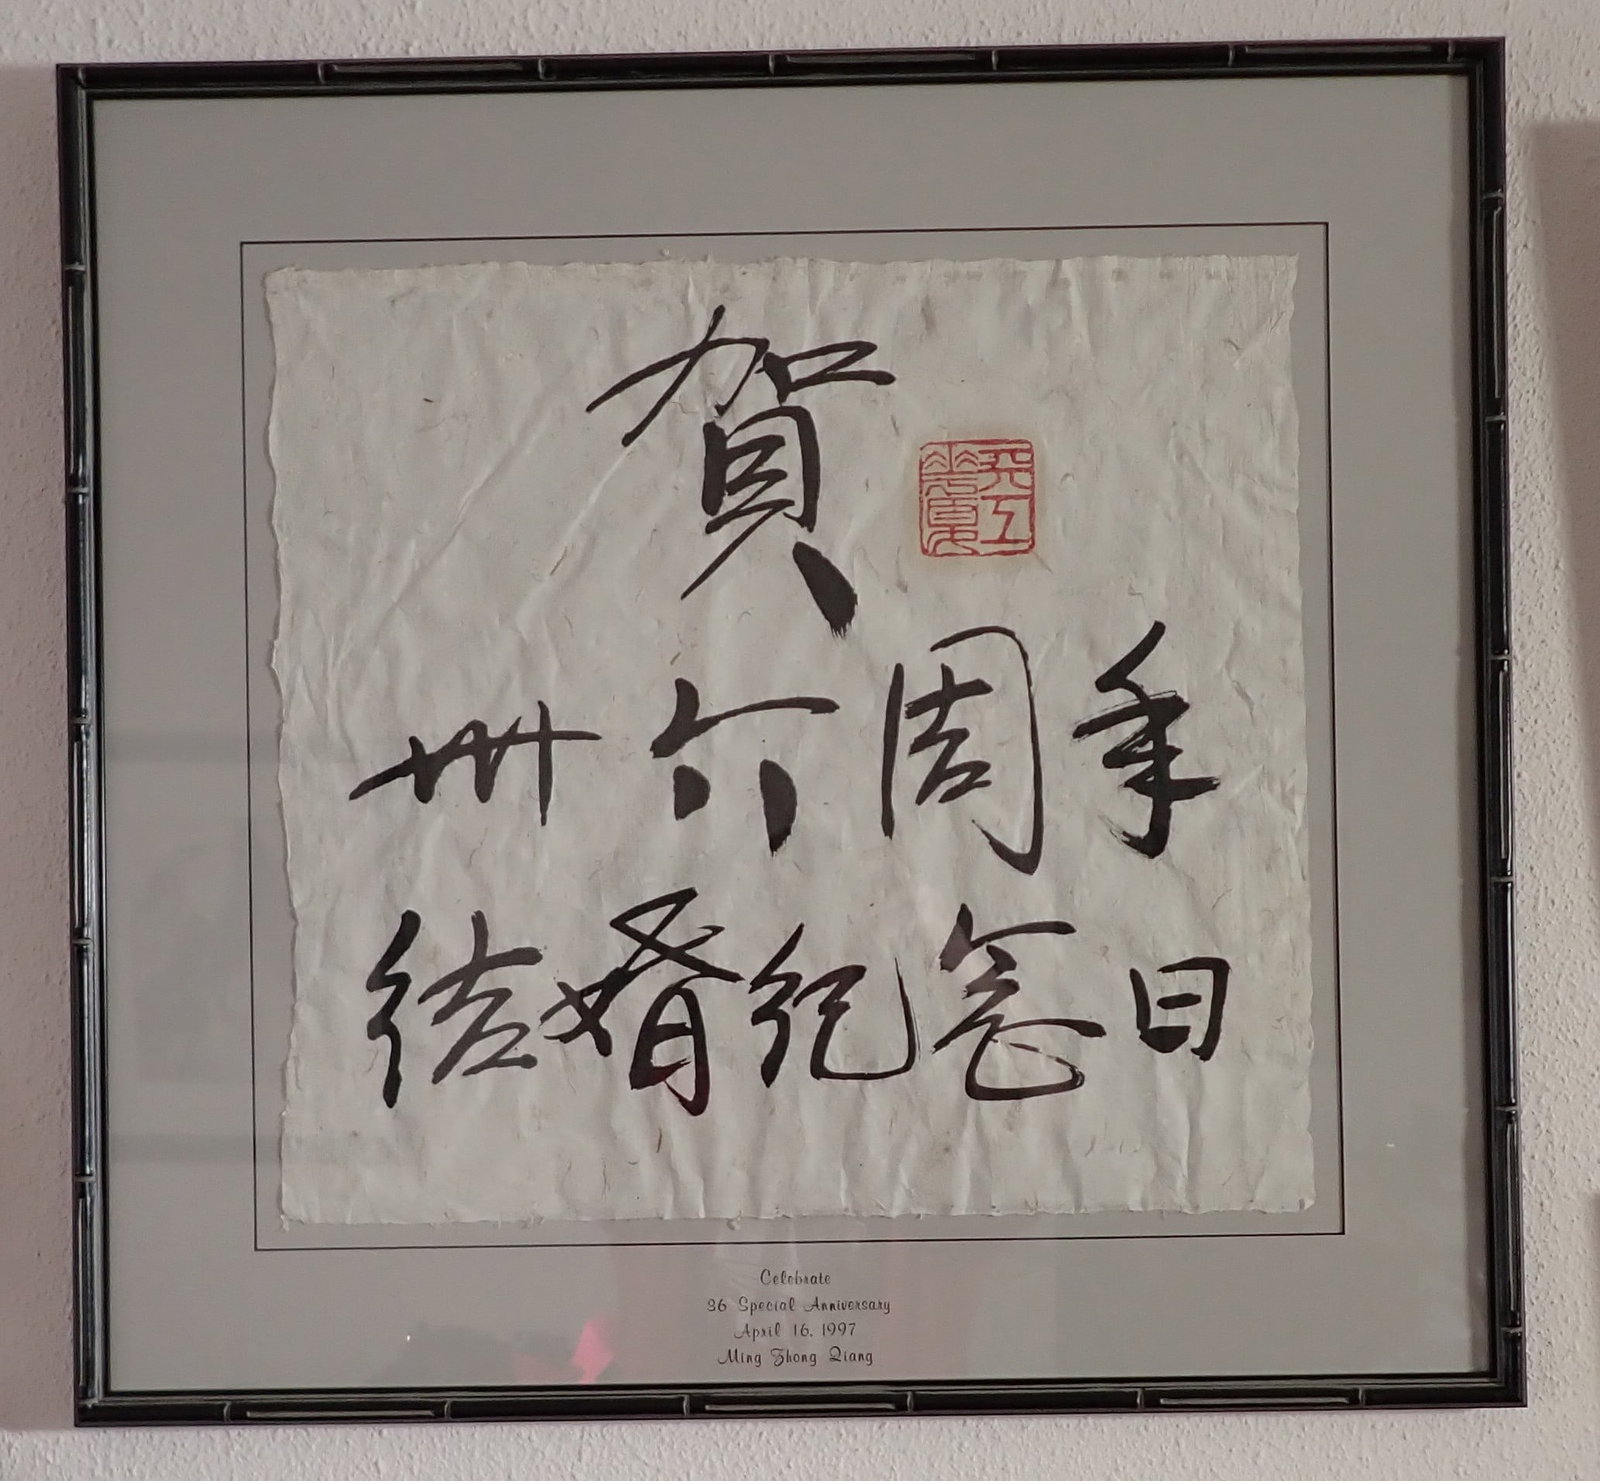 賀
卅六周年
结婚纪念日
Celebrate
36 Special Anniversary
April 16, 1997
Ming Zhong Qiang